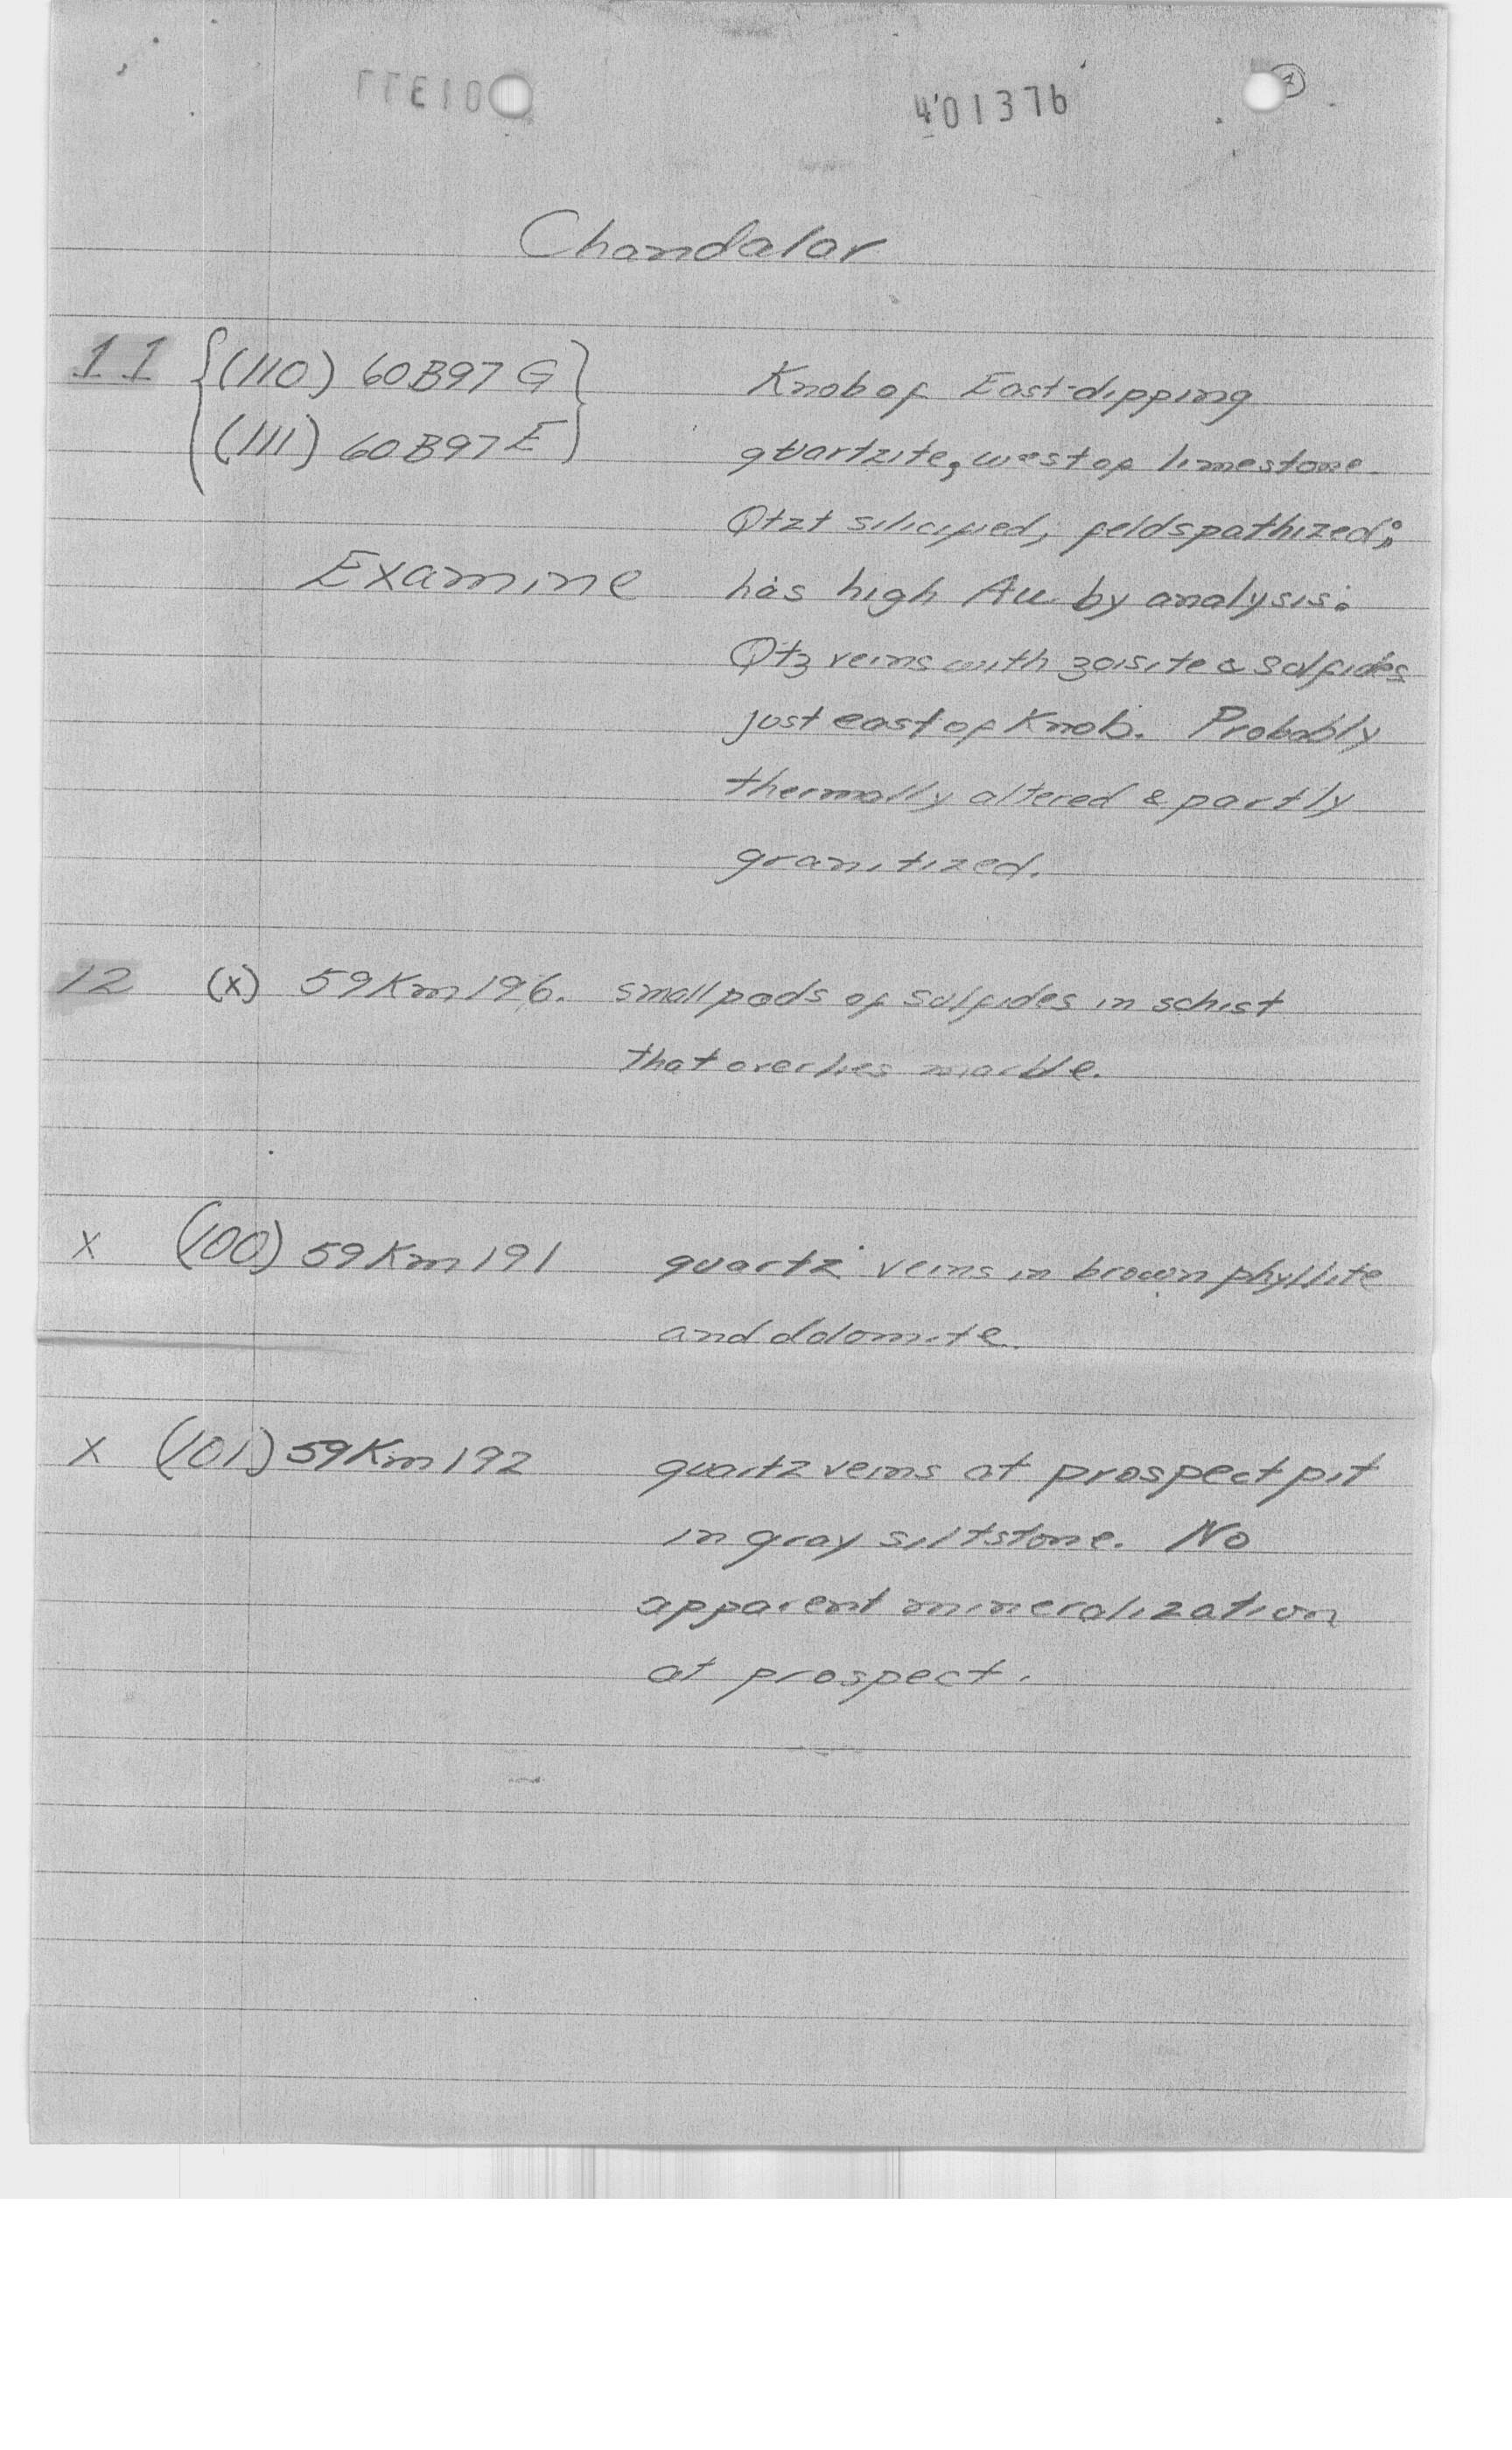 401376
Chandalar
11 {(110) 60B97G} Knob of East-dipping
{(111) 60B97E} quartzite, west of limestone.
Qtzt silicified, feldspathized;
Examine has high Au by analysis.
Qtz veins with zoisite & sulfides
just east of Knob. Probably
thermally altered & partly
granitized.
12 (x) 59Km196. small pods of sulfides in schist
that overlies marble.
x (100) 59Km191 quartz veins in brown phyllite
and dolomite.
x (101) 59Km192 quartz veins at prospect pit
in gray siltstone. No
apparent mineralization
at prospect.